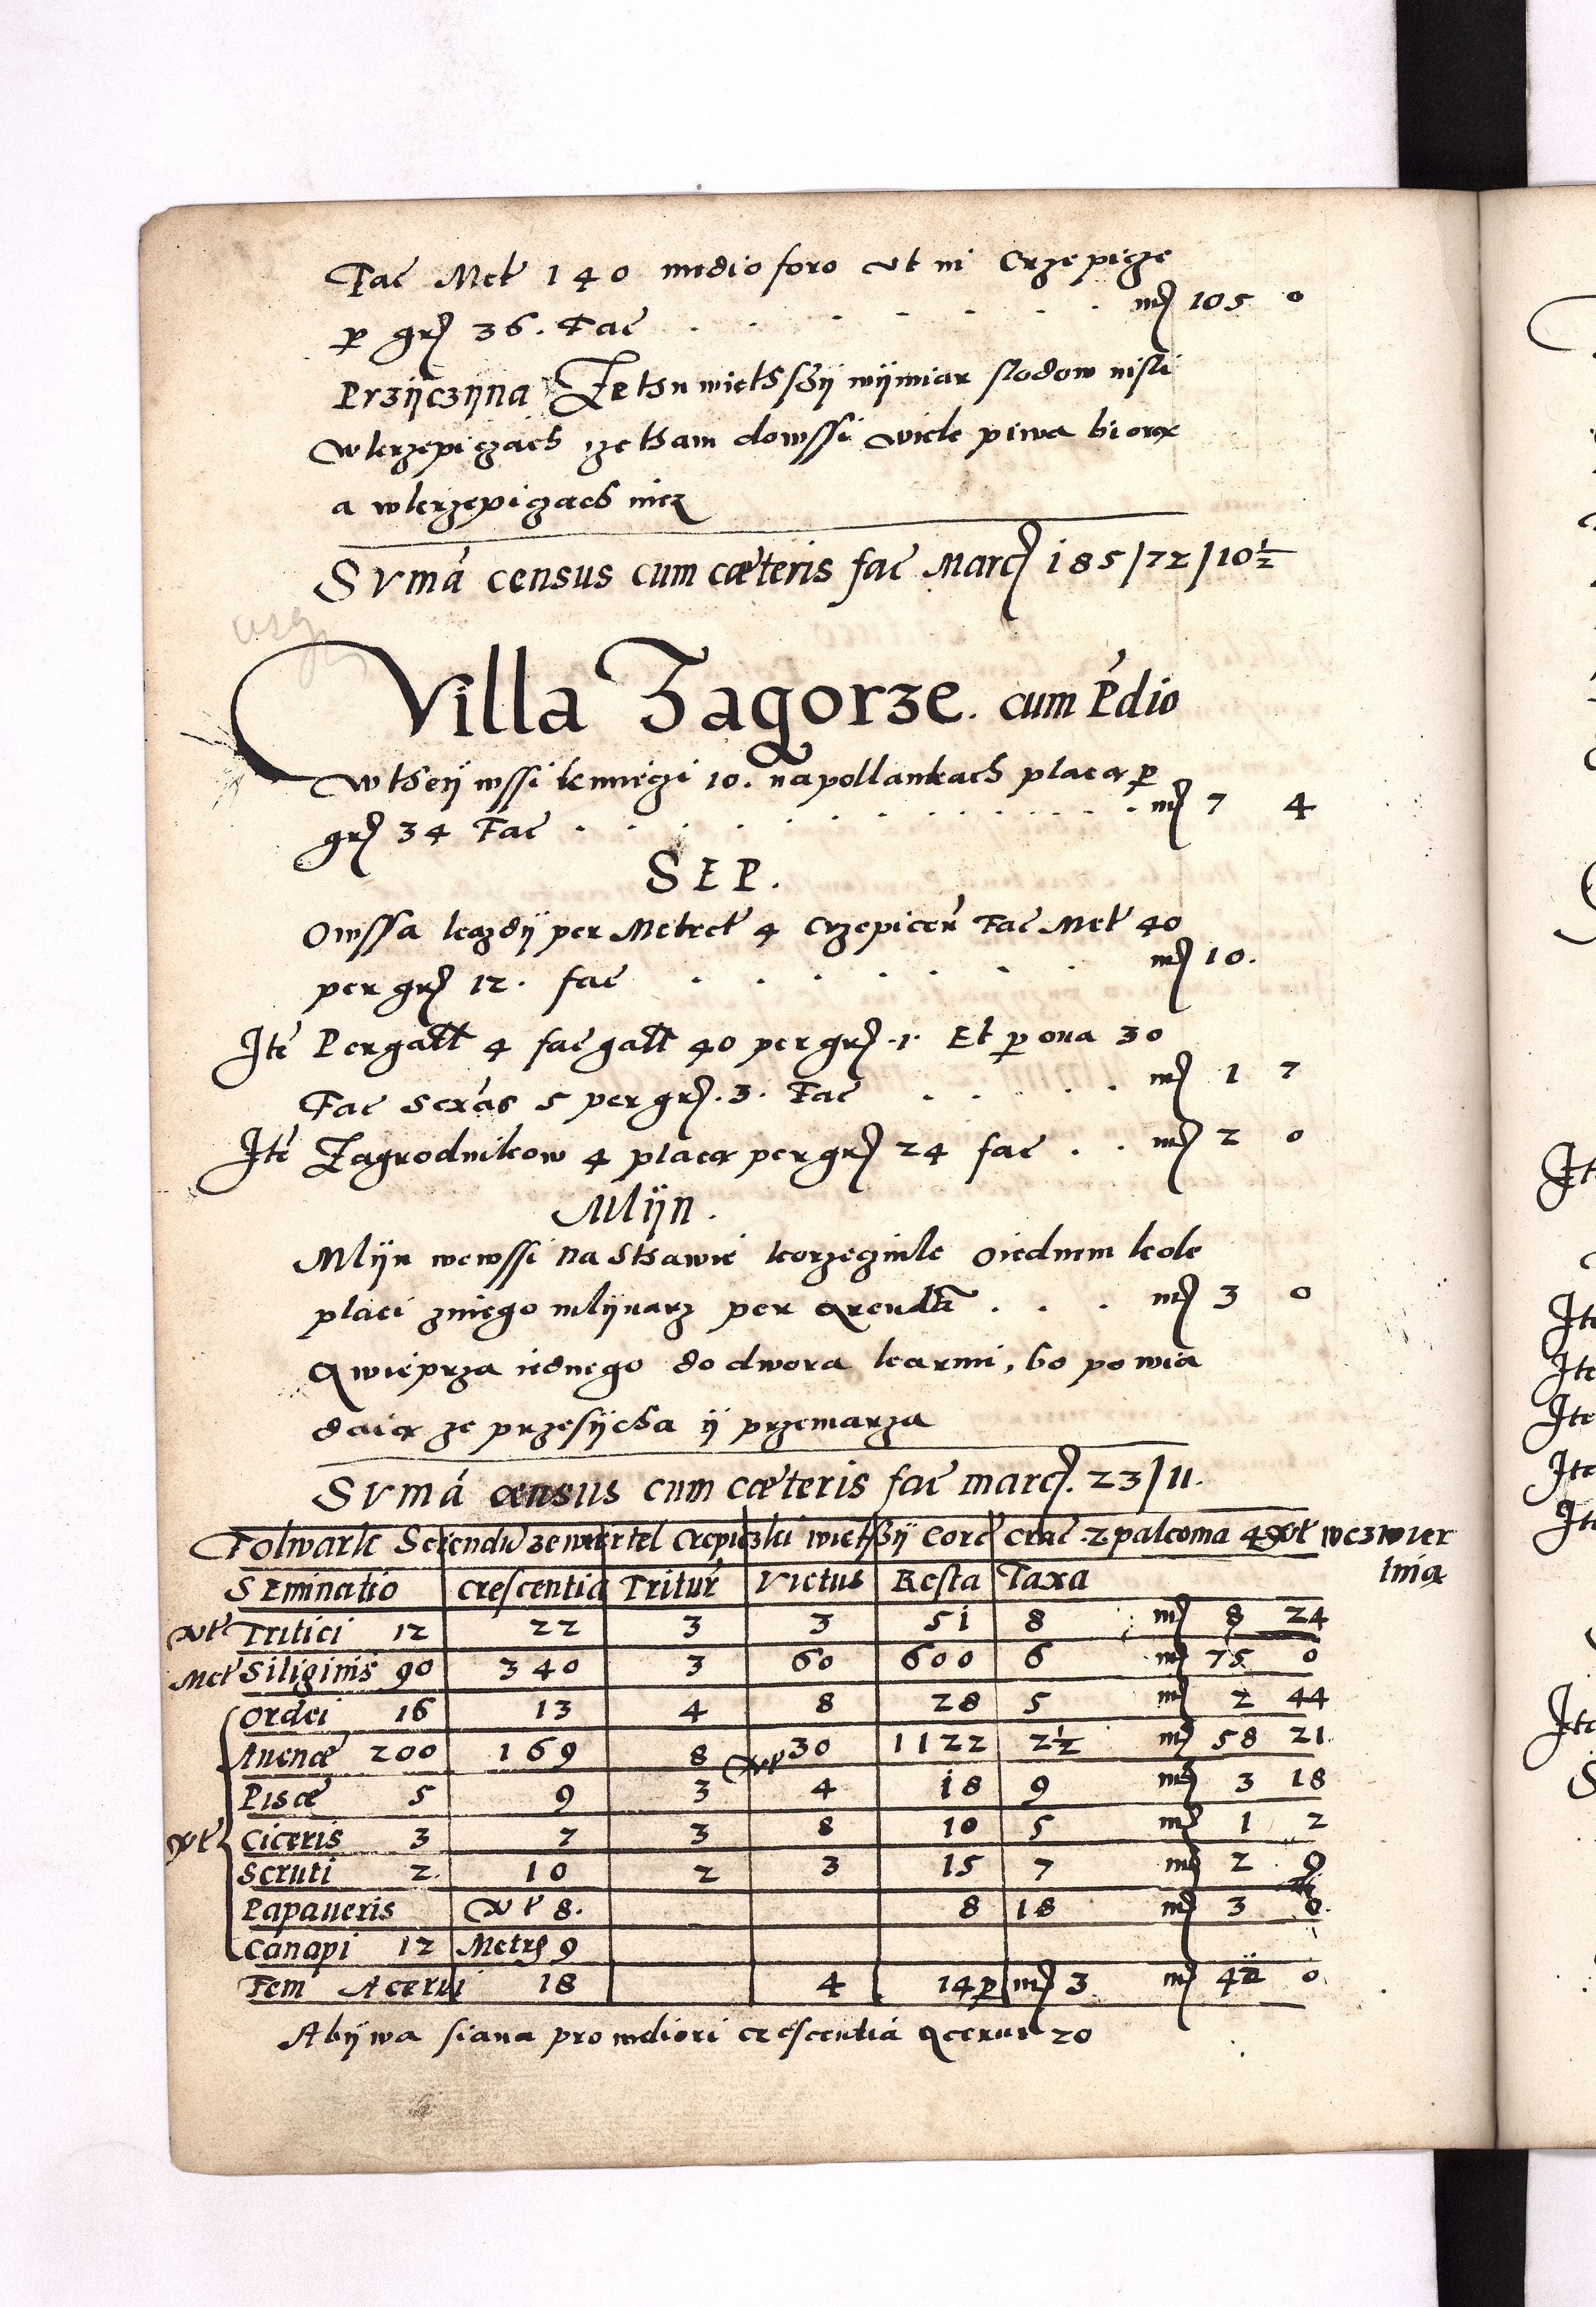 Fac Metr 140 medio foro ut in Crzepicze
per gr 36. Fac . . . . . . . m 105 0
Przÿczÿna Ze thu wiethsßÿ wÿmiar slodow nisli
w krzepiczach ize tham dowssi wiele piwa biorą
a w krzepiczach niez
SVma census cum cæteris fac Marc 185/72/10½
Villa Zagorze. cum Pdio
W theÿ wssi kmieczi 10. na pollankach placą per
gr 34 Fac . . . . . . . . . . . . m 7 4
SEP.
Owssa kazdÿ per Metret 4 Crzepicen Fac Met 40
per gr 12. fac . . . . . . m 10.
Ite Per gall 4 fac gall 40 per gr .1. Et per oua 30
Fac Sexas 5 per gr .3. Fac . . . . . m 1 7
Ite Zagrodnikow 4 placą per gr 24 fac . . m 2 0
Mlÿn.
Mlÿn we wssi na Sthawie korzecznik o iednem kole
placi z niego mlÿnarz per arenda . . . m 3 0
A wieprza iednego do dwora karmi, bo powia
daią ze przesÿcha ÿ przemarza
SVma census cum cæteris fac marc. 23/11.
Folwark Sciendu ze wiertel Crepiczki wietßÿ Core Crac 2 palcoma 4 wezwier
tnią
SEminatio Crescentia Tritur Victus Resta Taxa
Tritici 12 22 3 3 51 8 m 8 24
Met Siliginis 90 340 3 60 600 6 m 75 0
Ordei 16 13 4 8 28 5 m 2 44
Auenæ 200 169 8 30 1122 2½ m 58 21
Pisæ 5 9 3 4 18 9 m 3 18
Ciceris 3 7 3 8 10 5 m 1 2
Scruti 2. 10 2 3 15 7 m 2 9
Papaueris 8. 8 18 m 3 0.
Canapi 12 Metr 9
Fem Acerui 18 4 14 per m 3 m 42 0
Abÿwa siana pro meliori crescentia acerui 20